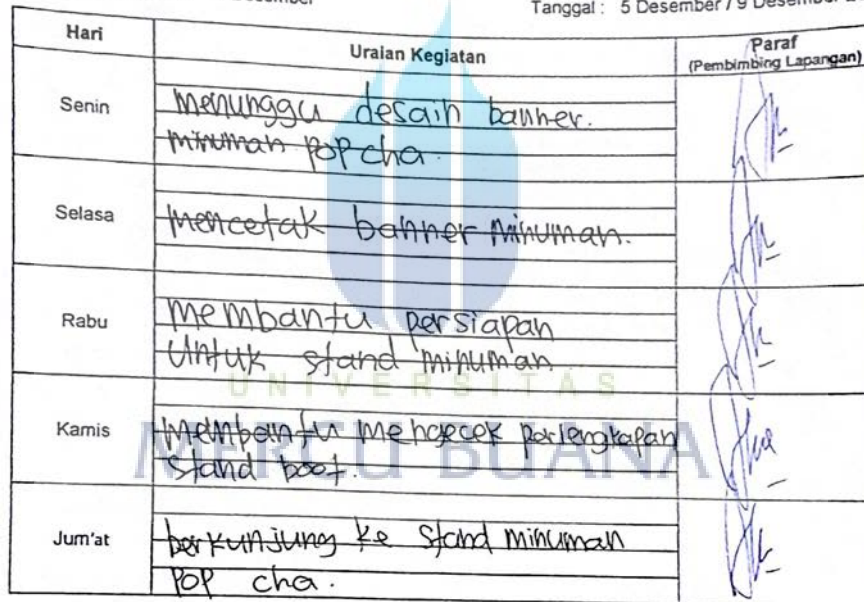 Tanggal : 5 Desember / 9 Desember
Hari Uraian Kegiatan Paraf
(Pembimbing Lapangan)
Senin menunggu desain banner.
minuman pop cha.
Selasa mencetak banner minuman.
Rabu membantu persiapan
untuk stand minuman
UNIVERSITAS
Kamis membantu mengecek perlengkapan
stand boot.
MERCU BUANA
Jum'at berkunjung ke stand minuman
pop cha.